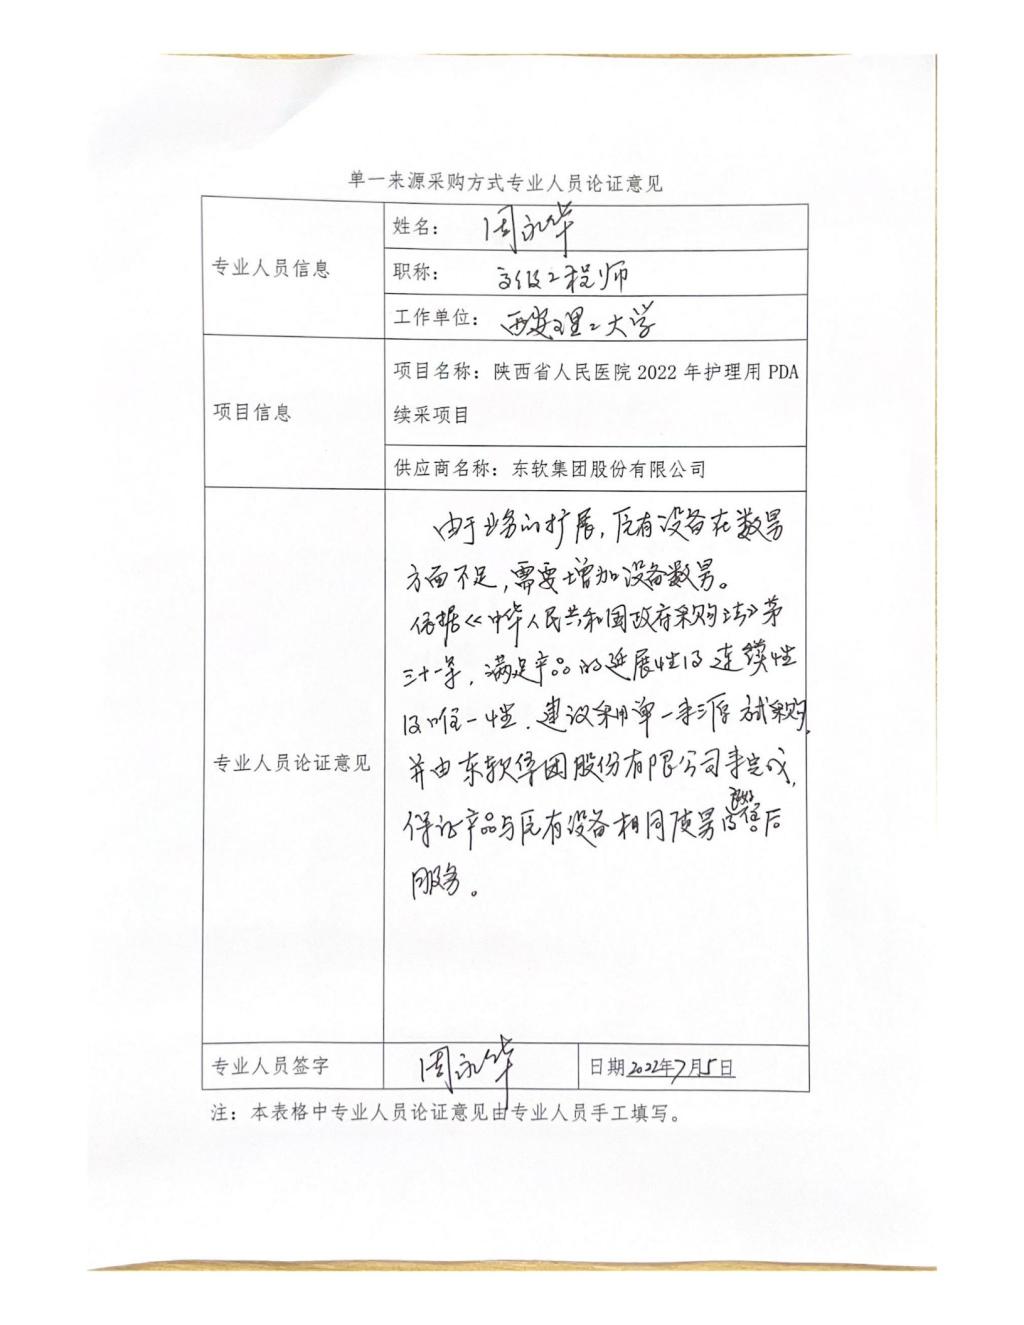 单一来源采购方式专业人员论证意见
专业人员信息
姓名： 周永华
职称： 高级工程师
工作单位： 西安理工大学
项目信息
项目名称：陕西省人民医院 2022 年护理用 PDA
续采项目
供应商名称：东软集团股份有限公司
专业人员论证意见
由于业务的扩展，原有设备在数量
方面不足，需要增加设备数量。
依据《中华人民共和国政府采购法》第
三十一条，满足产品的延展性及连续性
及唯一性，建议采用单一来源方式采购，
并由东软集团股份有限公司来完成，
保证产品与原有设备相同质量及售后
服务。
专业人员签字
周永华
日期 2022年7月5日
注：本表格中专业人员论证意见由专业人员手工填写。